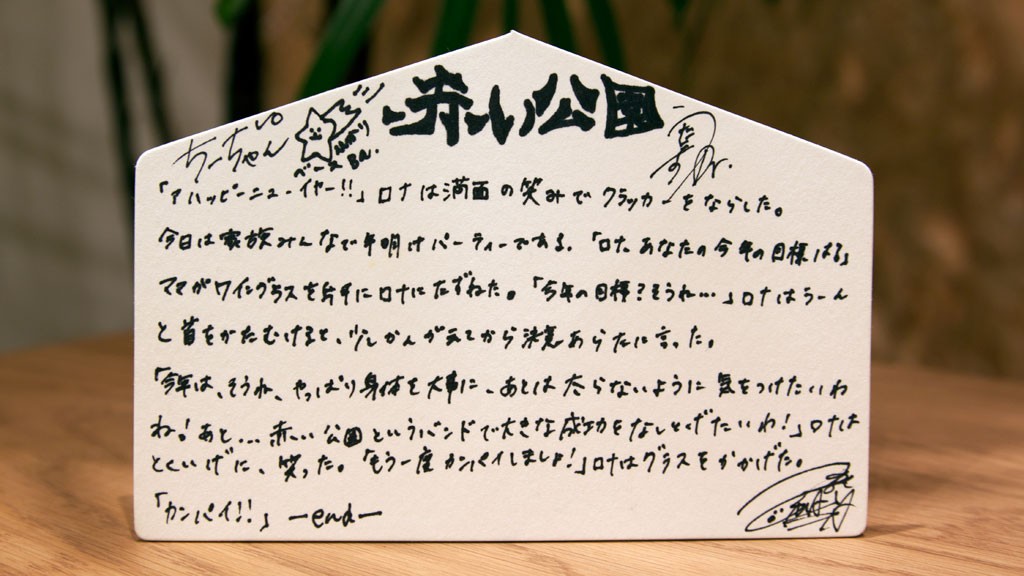 赤い公園
ちーぴゃん
ベース
Ba.
「アハッピーニューイヤー!!」ロナは満面の笑みでクラッカーをならした。
今日は家族みんなで年明けパーティーである。「ロナ、あなたの今年の目標は?」
ママがワイングラスを片手にロナにたずねた。「今年の目標?そうね…」ロナはうーん
と首をかたむけると、少しかんがえてから決意あらたに言った。
「今年は、そうね、やっぱり身体を大事に、あとは太らないように気をつけたいわ
ね!あと…赤い公園というバンドで大きな成功をなしとげたいわ!」ロナは
とくいげに、笑った。「もう一度カンパイしましょ!」ロナはグラスをかかげた。
「カンパイ!!」—end—